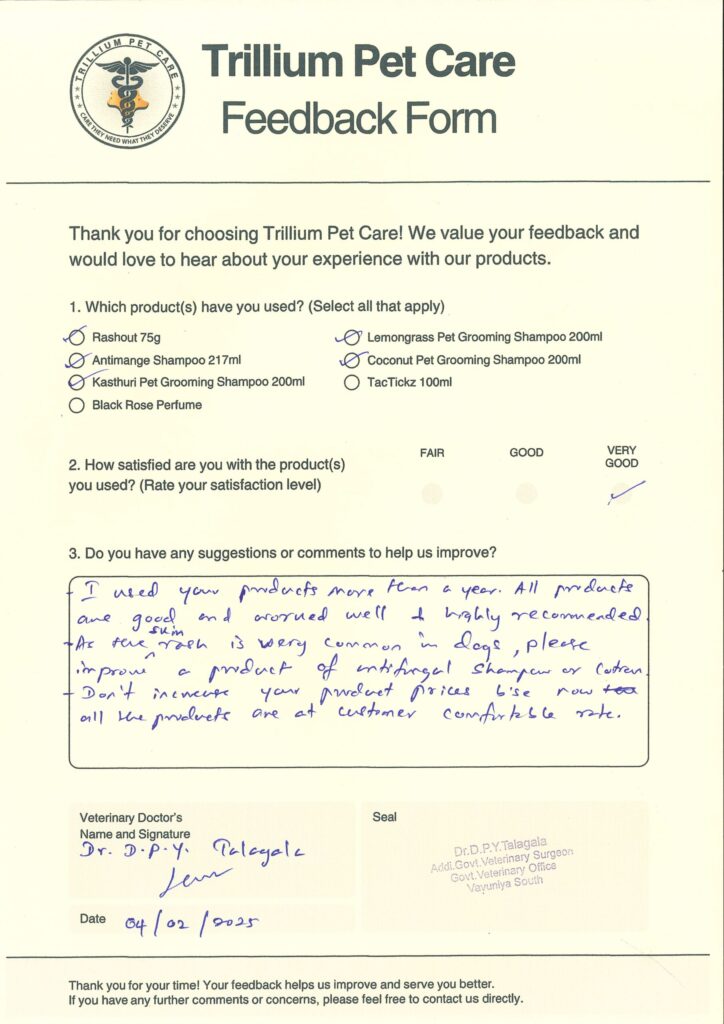 TRILLIUM PET CARE
CARE THEY NEED WHAT THEY DESERVE
Trillium Pet Care
Feedback Form
Thank you for choosing Trillium Pet Care! We value your feedback and
would love to hear about your experience with our products.
1. Which product(s) have you used? (Select all that apply)
Rashout 75g
Lemongrass Pet Grooming Shampoo 200ml
Antimange Shampoo 217ml
Coconut Pet Grooming Shampoo 200ml
Kasthuri Pet Grooming Shampoo 200ml
TacTickz 100ml
Black Rose Perfume
FAIR GOOD VERY
GOOD
2. How satisfied are you with the product(s)
you used? (Rate your satisfaction level)
3. Do you have any suggestions or comments to help us improve?
- I used your products more than a year. All products
are good and worked well & highly recommended.
- As the skin rash is very common in dogs, please
improve a product of antifungal shampoo or
- Don't increase your product prices b'se now
all the products are at customer comfortable rate.
Veterinary Doctor's
Name and Signature
Dr. D.P.Y. Talagala
Date 04/02/2025
Seal
Dr.D.P.Y.Talagala
Addi.Govt.Veterinary Surgeon
Govt.Veterinary Office
Vavuniya South
Thank you for your time! Your feedback helps us improve and serve you better.
If you have any further comments or concerns, please feel free to contact us directly.